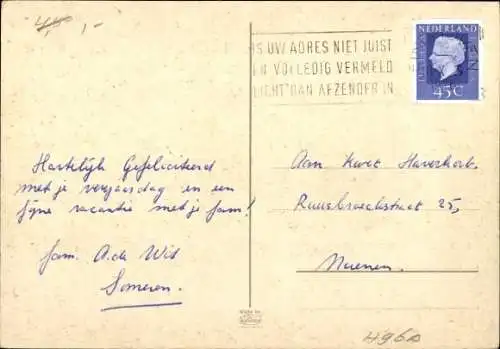 4,50,-
IS UW ADRES NIET JUIST
EN VOLLEDIG VERMELD
LICHT DAN AFZENDER IN
NEDERLAND
45c
Hartelijk Gefeliciteerd
met je verjaardag en een
fijne vacantie met je fam!
fam. A. de Wit
Someren.
Aan Kwee Haverkorb,
Ruusbroeckstraat 25,
Nuenen.
496a